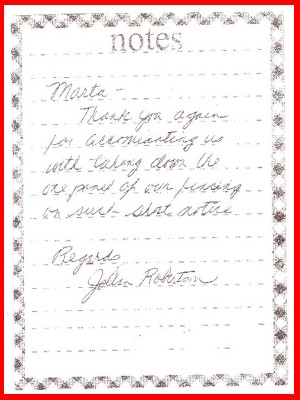 notes
Marta -
Thank you again
for accomodating us
with taking down the
one panel of our fencing
on such short notice
Regards
John Robertson